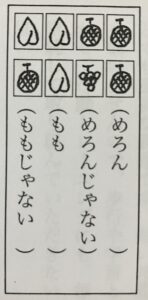 （めろん　　　）
（めろんじゃない　）
（もも　　　）
（ももじゃない　　）